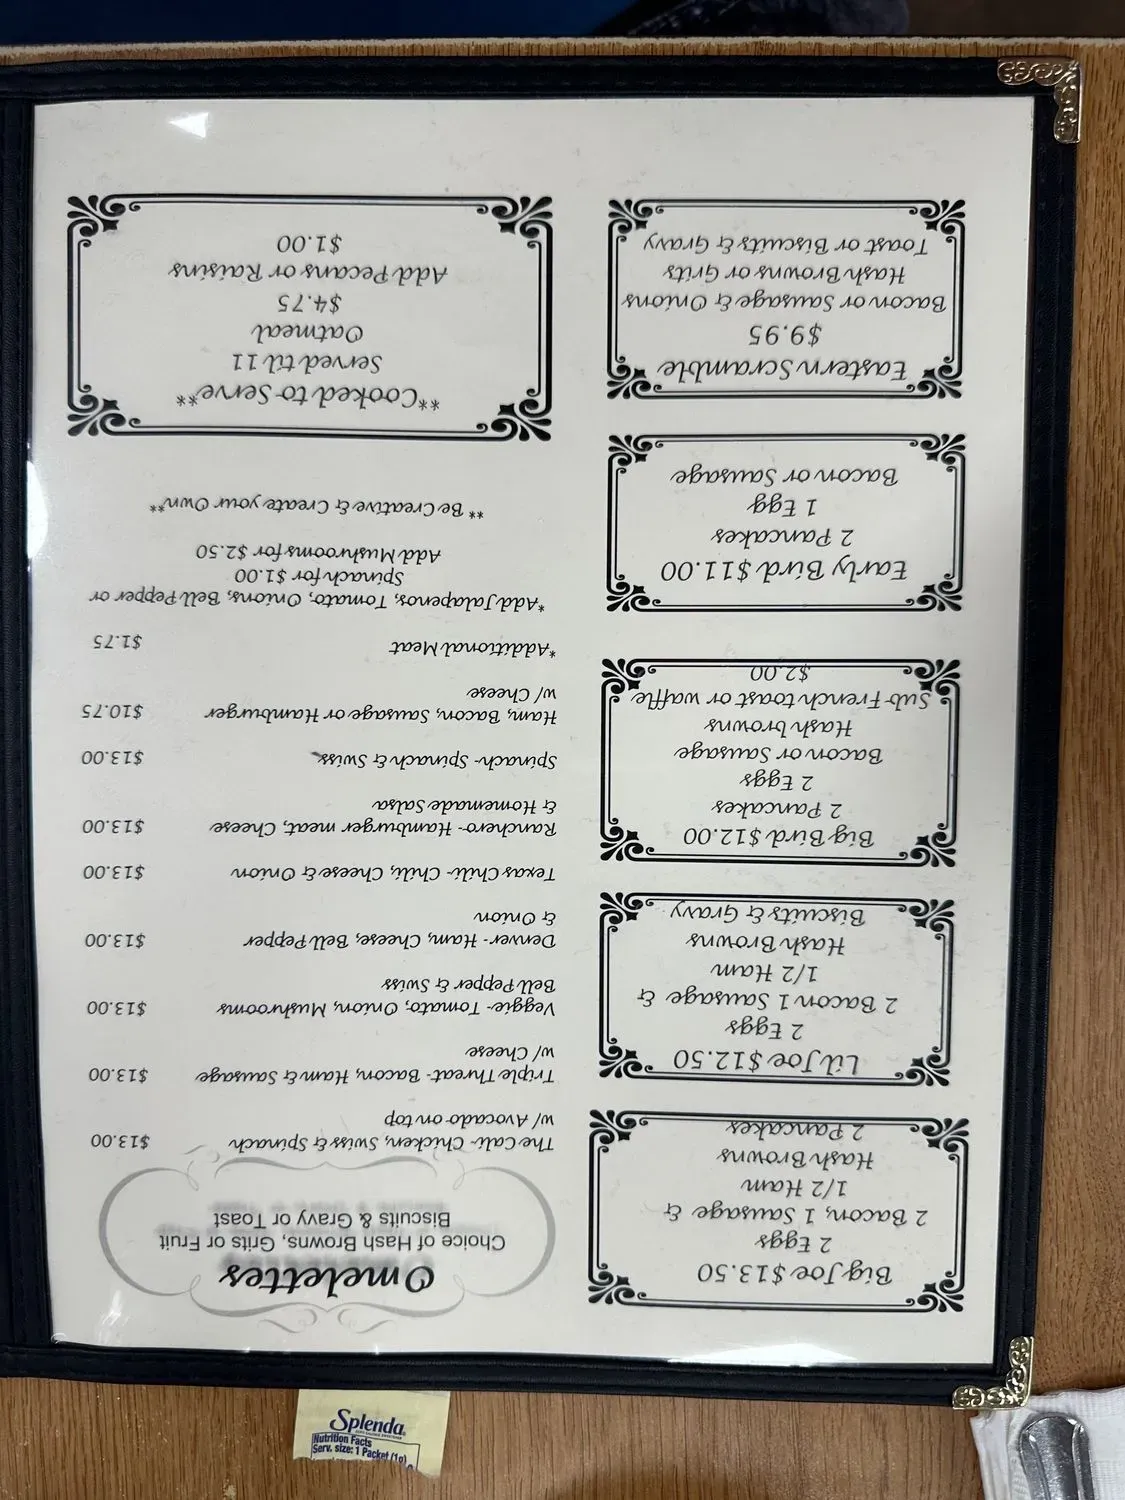 Big Joe $13.50
2 Eggs
2 Bacon, 1 Sausage &
1/2 Ham
Hash Browns
2 Pancakes
Lil Joe $12.50
2 Eggs
2 Bacon 1 Sausage &
1/2 Ham
Hash Browns
Biscuits & Gravy
Big Bird $12.00
2 Pancakes
2 Eggs
Bacon or Sausage
Hash browns
Sub French toast or waffle
$2.00
Early Bird $11.00
2 Pancakes
1 Egg
Bacon or Sausage
Eastern Scramble
$9.95
Bacon or Sausage & Onions
Hash Browns or Grits
Toast or Biscuits & Gravy
Omelettes
Choice of Hash Browns, Grits or Fruit
Biscuits & Gravy or Toast
The Cali- Chicken, Swiss & Spinach $13.00
w/ Avocado on top
Triple Threat- Bacon, Ham & Sausage $13.00
w/ Cheese
Veggie- Tomato, Onion, Mushrooms $13.00
Bell Pepper & Swiss
Denver- Ham, Cheese, Bell Pepper $13.00
& Onion
Texas Chili- Chili, Cheese & Onion $13.00
Ranchero- Hamburger meat, Cheese, $13.00
& Homemade Salsa
Spinach- Spinach & Swiss $13.00
Ham, Bacon, Sausage or Hamburger $10.75
w/ Cheese
*Additional Meat $1.75
*Add Jalapenos, Tomato, Onions, Bell Pepper or
Spinach for $1.00
Add Mushrooms for $2.50
** Be Creative & Create your Own**
**Cooked to Serve**
Served til 11
Oatmeal
$4.75
Add Pecans or Raisins
$1.00
Splenda
Nutrition Facts
Serv. size: 1 Packet (1g)